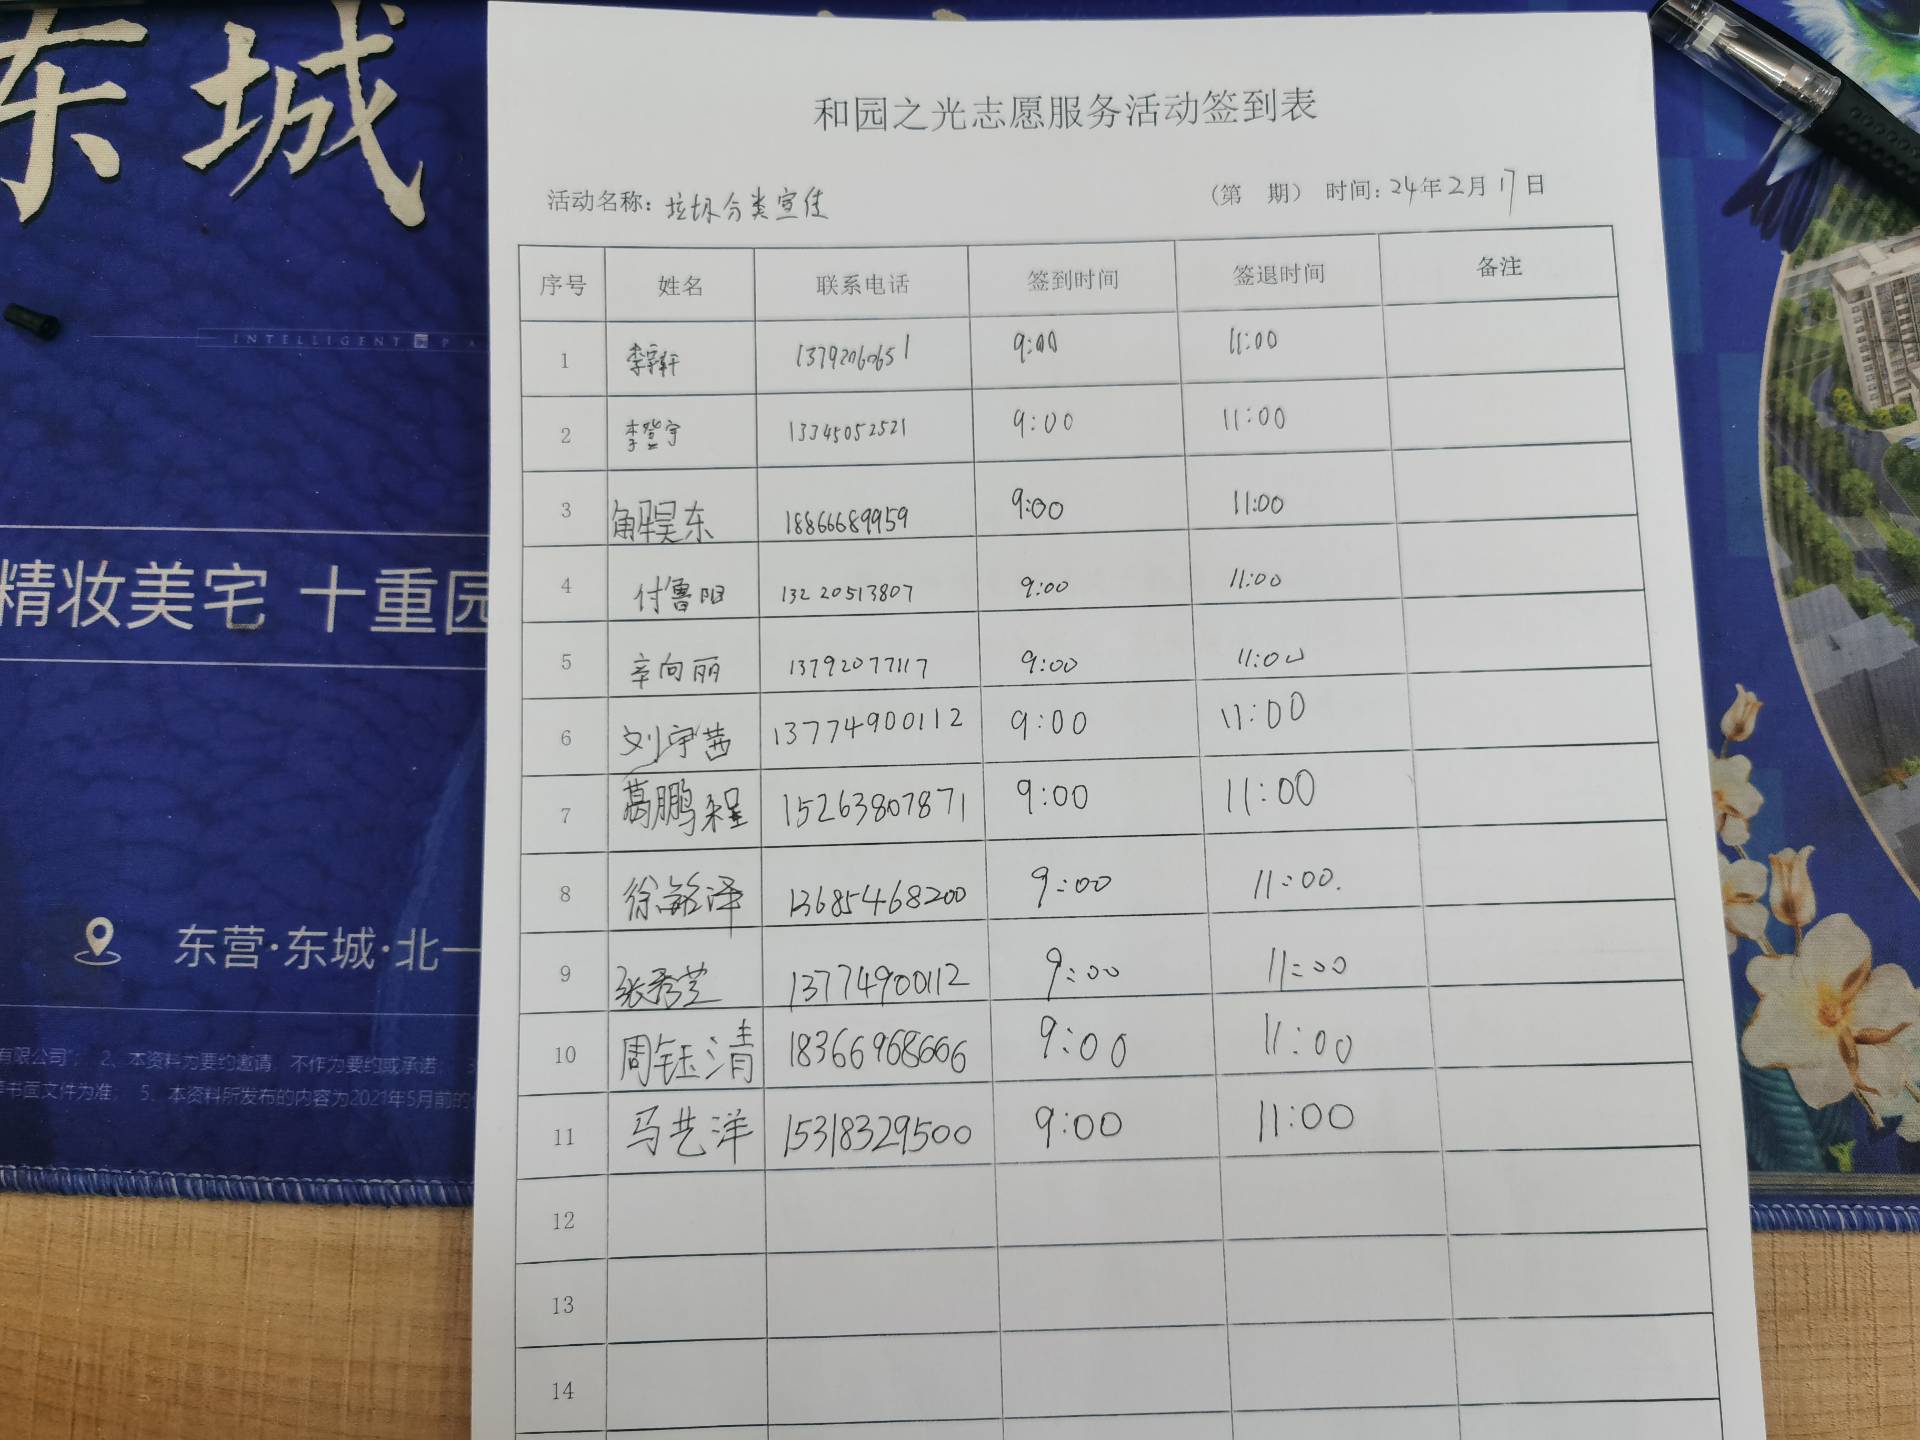 东城
INTELLIGENT PA
精妆美宅 十重园
东营·东城·北一
有限公司"; 2、本资料为要约邀请,不作为要约或承诺; 3
书面文件为准; 5、本资料所发布的内容为2021年5月前的
和园之光志愿服务活动签到表
活动名称: 垃圾分类宣传 (第 期) 时间: 24年2月17日
序号 姓名 联系电话 签到时间 签退时间 备注
1 李宇轩 13792060651 9:00 11:00
2 李登宇 13345052521 9:00 11:00
3 解昊东 18866689959 9:00 11:00
4 付鲁阳 13220513807 9:00 11:00
5 辛向丽 13792077117 9:00 11:00
6 刘宇茜 13774900112 9:00 11:00
7 葛鹏程 15263807871 9:00 11:00
8 徐铭泽 13685468200 9:00 11:00.
9 张秀芝 13774900112 9:00 11:00
10 周钰清 18366968666 9:00 11:00
11 马艺洋 15318329500 9:00 11:00
12
13
14